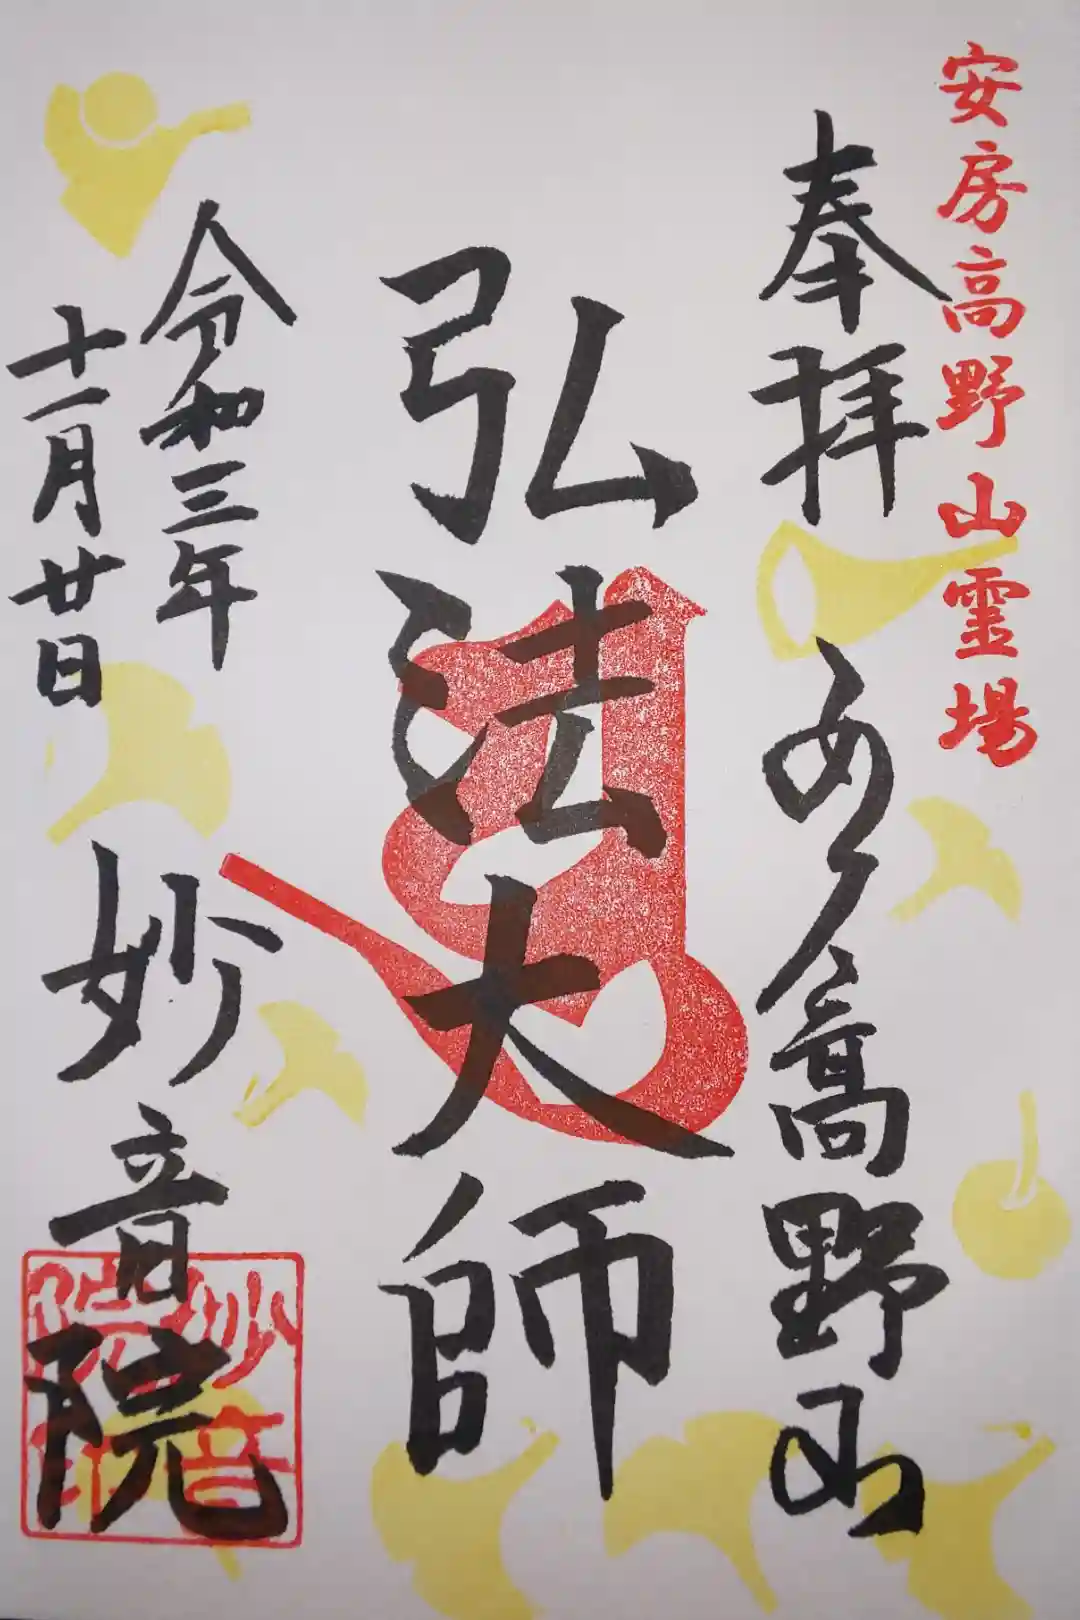 安房高野山霊場
奉拝
あ
高野山
弘法大師
令和三年
十一月廿日
妙音院
妙音院印